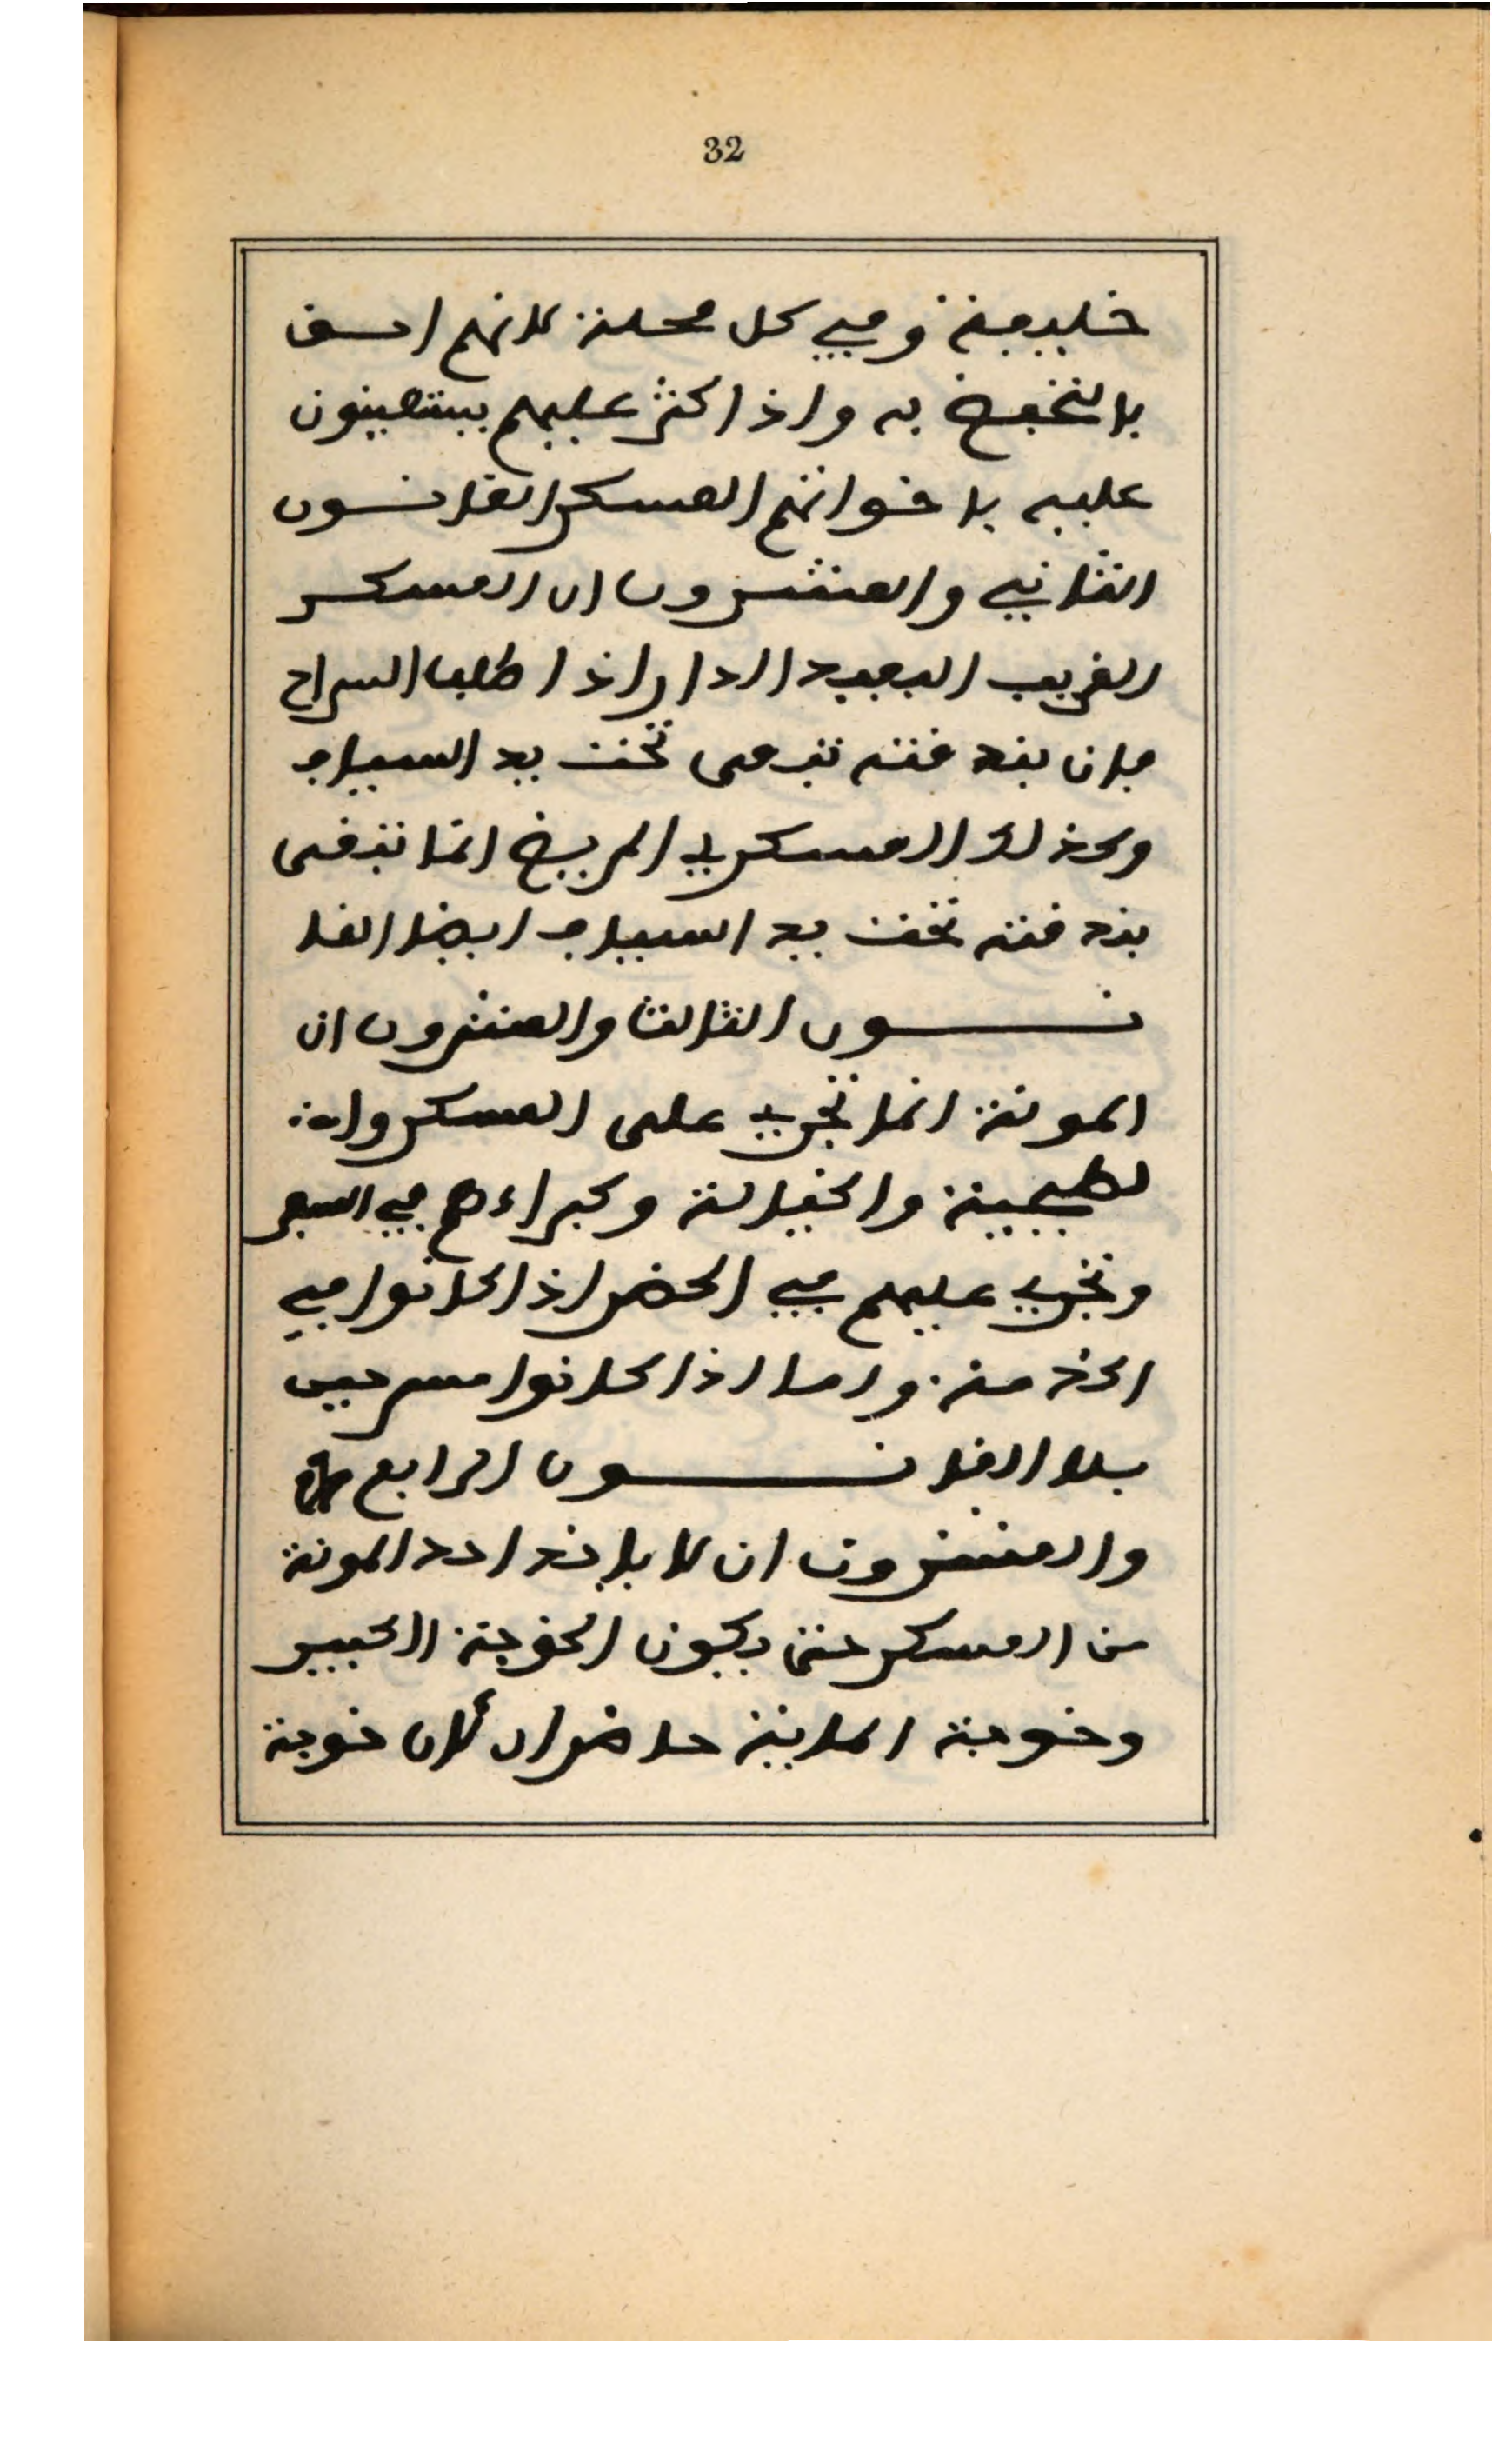 32
خليفة وفي كل محلة لانهم احق
بالتحفظ به واذا كثر عليهم يستعينون
عليه باخوانهم العسكر القانون
الثاني والعشرون ان العسكر
الغريب البعيد الدار اذا طلب السراح
فان بندقته تبقى تحت يد السياف
وكذلك العسكري المريض انما تبقى
بندقته تحت يد السياف ايضا القا
نون الثالث والعشرون ان
المونة انما تجري على العسكر وا
لطبجية والخيالة وكبراءهم في السفر
وتجري عليهم في الحضر اذا كانوا في
الخدمة واما اذا كانوا مسرحين
بلا القانون الرابع
والعشرون ان لا ياخذ احد المونة
من العسكر حتى يكون الخوجة الكبير
وخوجة الماية حاضران لان خوجة